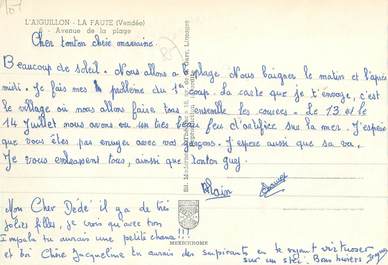 L'AIGUILLON - LA FAUTE (Vendée)
Avenue de la plage
Cher tonton chère marraine.
Beaucoup de soleil. Nous allons à la plage. Nous baigner le matin et l'après
midi. Je fais mes problème du 1er coup. La carte que je t'envoye, c'est
le village où nous allons faire tous ensemble les cources. Le 13 et le
14 Juillet nous avons vu un très beau feu d'artifice sur la mer. J'espère
que vous êtes pas ennuyer avec vos garçons. J'espère aussi que sa va.
Je vous embrassent tous, ainsi que tonton guy.
Alain
Mon Cher Dédé il ga de très
jolies filles, je crois qu'avec ton
Impala tu aurais une petite chance!!!
et toi Chère Jacqueline tu aurais des supirants en te voyant virtuoser
sur un ski. Bons baisers
MEXICHROME